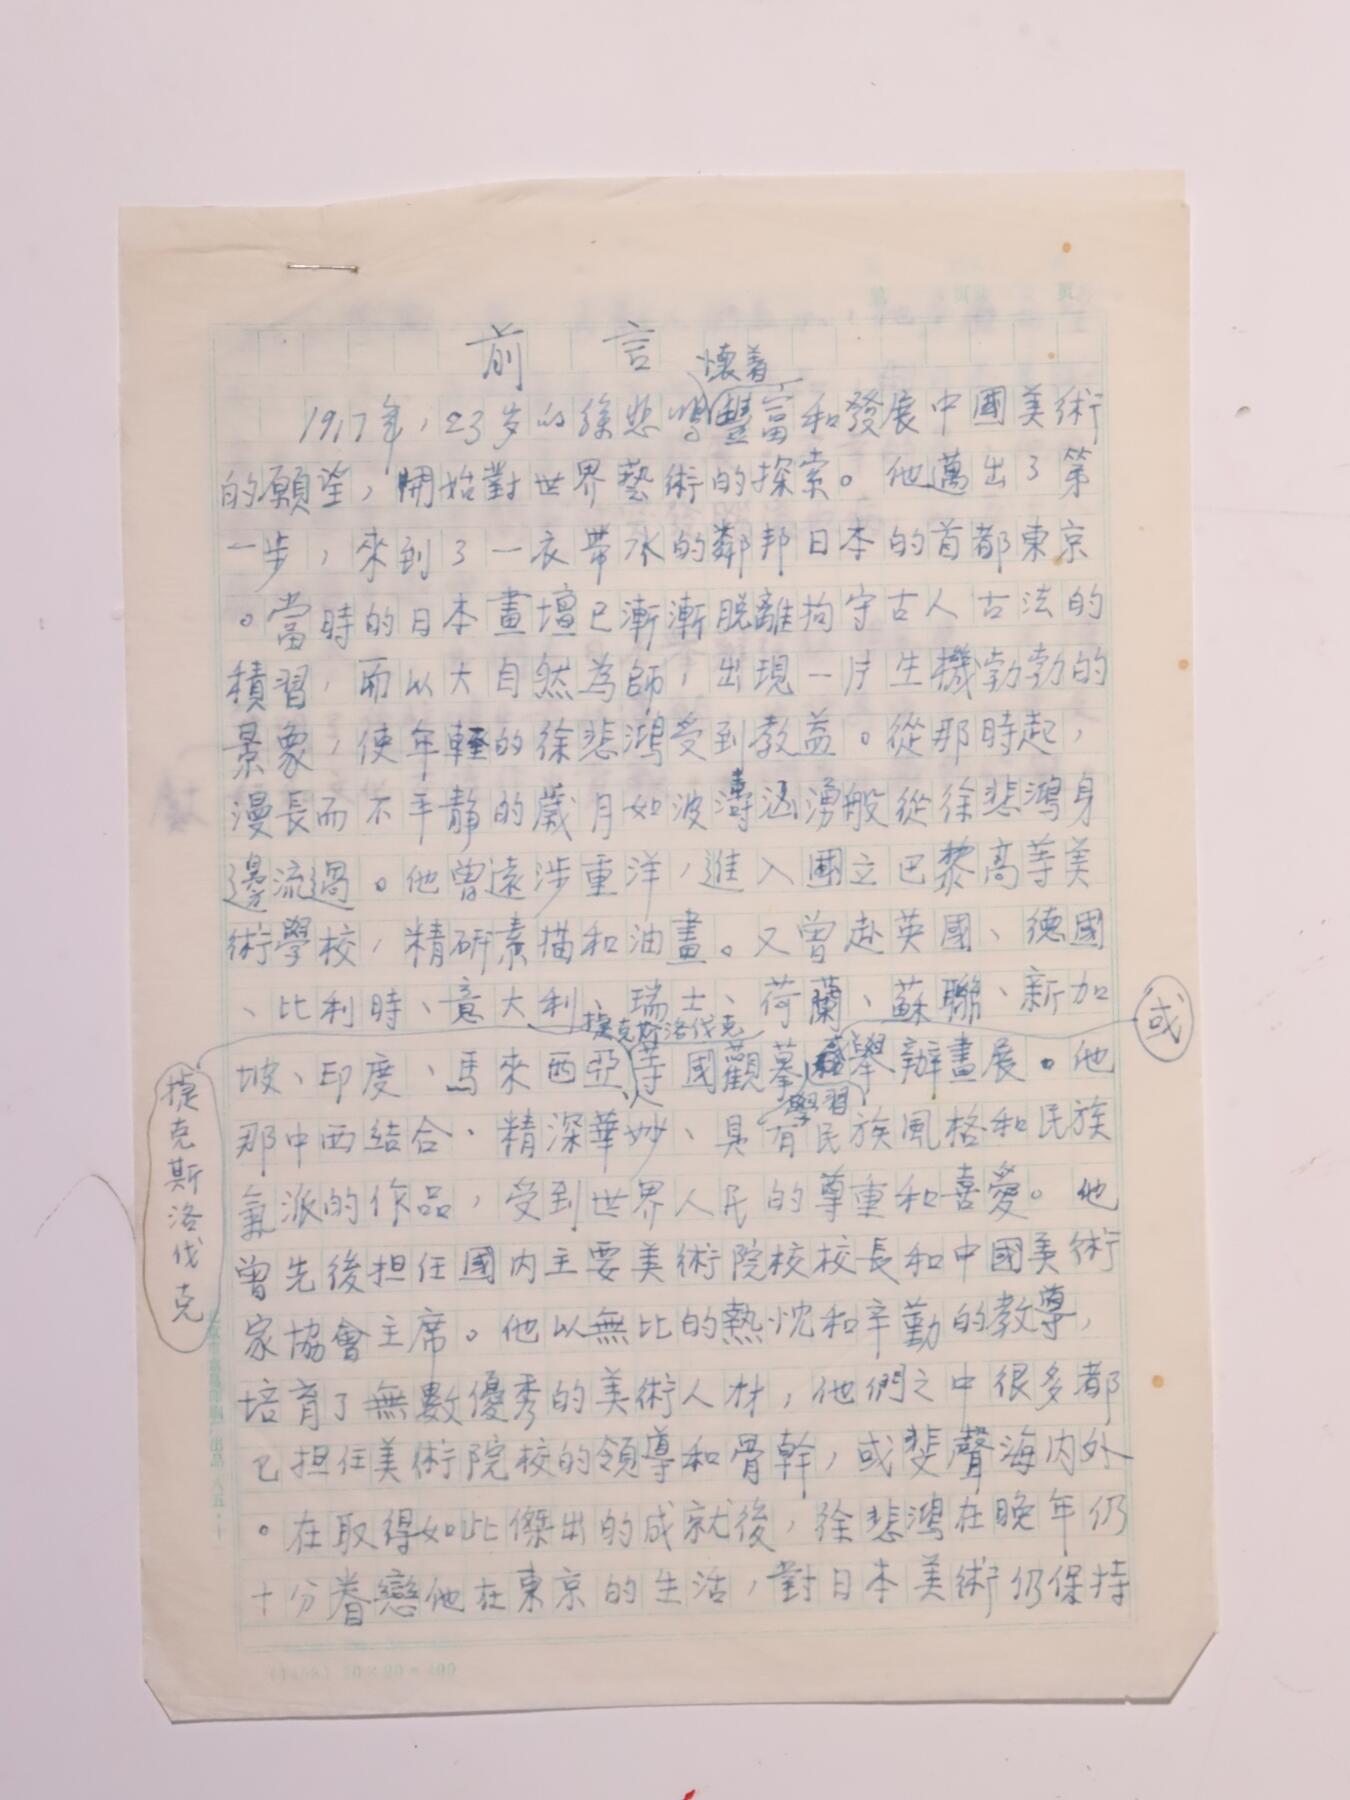 前言
懷着
1917年，23岁的徐悲鴻豐富和發展中國美術
的願望，開始對世界藝術的探索。他邁出了第
一步，來到了一衣帶水的鄰邦日本的首都東京
。當時的日本畫壇已漸漸脫離拘守古人古法的
積習，而以大自然為師，出現一片生機勃勃的
景象，使年輕的徐悲鴻受到教益。從那時起，
漫長而不平靜的歲月如波濤洶湧般從徐悲鴻身
邊流過。他曾遠涉重洋，進入國立巴黎高等美
術學校，精研素描和油畫。又曾赴英國、德國
、比利時、意大利、瑞士、荷蘭、蘇聯、新加
捷克斯洛伐克
或
坡、印度、馬來西亞等國觀摹舉辦畫展。他
學習
那中西結合、精深華妙、具有民族風格和民族
氣派的作品，受到世界人民的尊重和喜愛。他
曾先後担任國内主要美術院校校長和中國美術
家協會主席。他以無比的熱忱和辛勤的教導，
培育了無數優秀的美術人材，他們之中很多都
已担任美術院校的領導和骨幹，或斐聲海内外
。在取得如此傑出的成就後，徐悲鴻在晚年仍
十分眷戀他在東京的生活，對日本美術仍保持
捷克斯洛伐克
20×20=400